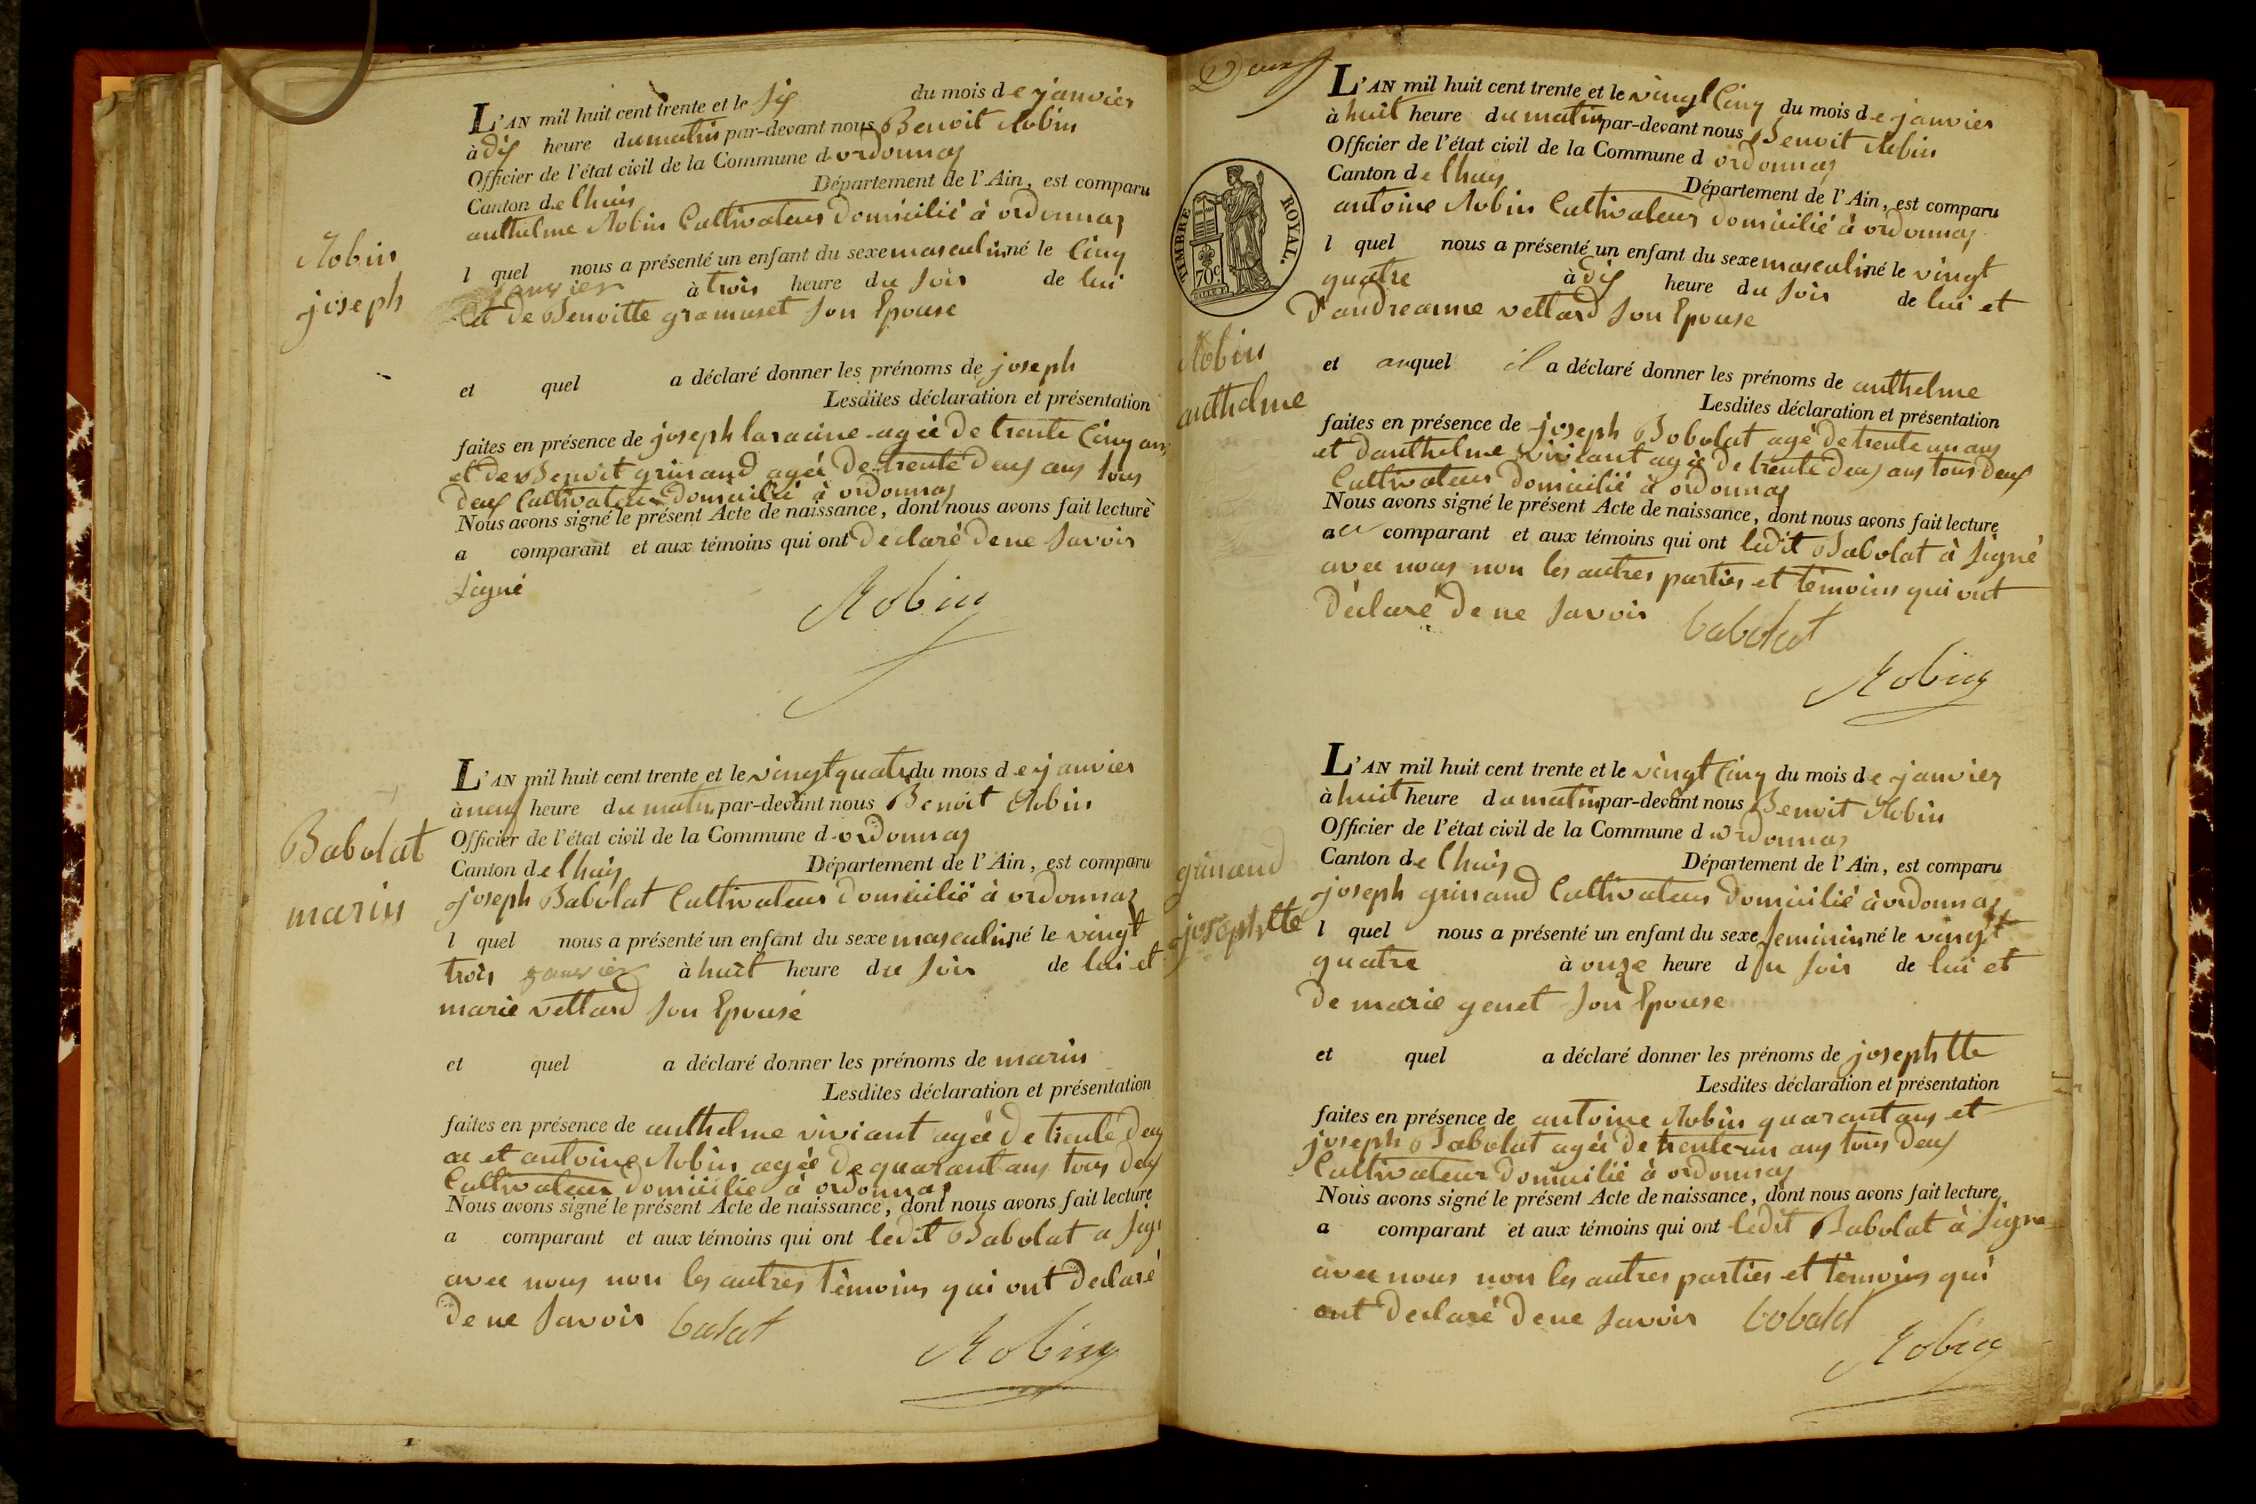 Robin
joseph
L'AN mil huit cent trente et le six du mois de janvier
à dix heure du matin par-devant nous Benoit Robin
Officier de l'état civil de la Commune d ordonnaz
Canton de lhuis Département de l'Ain, est comparu
anthelme Robin Cultivateur domicilié à ordonnaz
l quel nous a présenté un enfant du sexe masculin né le Cinq
janvier à trois heure du soir de lui
et de Benoitte gramuset son Epouse
et quel a déclaré donner les prénoms de joseph
Lesdites déclaration et présentation
faites en présence de joseph laracine agée de trente Cinq ans
et de Benoit grinand agée de trente deux ans tous
deux Cultivateur domicilié à ordonnaz
Nous avons signé le présent Acte de naissance, dont nous avons fait lecture
a comparant et aux témoins qui ont declaré de ne savoir
signé
Robin
Babolat
marin
L'AN mil huit cent trente et le vingt quatre du mois de janvier
à neuf heure du matin par-devant nous Benoit Robin
Officier de l'état civil de la Commune d ordonnaz
Canton de lhuis Département de l'Ain, est comparu
joseph Babolat Cultivateur domicilié à ordonnaz
l quel nous a présenté un enfant du sexe masculin né le vingt
trois janvier à huit heure du soir de lui et
marie vettard son Epouse
et quel a déclaré donner les prénoms de marin
Lesdites déclaration et présentation
faites en présence de anthelme viviant agée de trente deux
an et antoine Robin agée de quarant ans tous deux
Cultivateur domicilié à ordonnaz
Nous avons signé le présent Acte de naissance, dont nous avons fait lecture
a comparant et aux témoins qui ont ledit Babolat a sign
avec nous non les autres témoins qui ont declaré
de ne savoir babat
Robin
Deux
TIMBRE ROYAL.
70c.
Robin
anthelme
L'AN mil huit cent trente et le vingt Cinq du mois de janvier
à huit heure du matin par-devant nous Benoit Robin
Officier de l'état civil de la Commune d ordonnaz
Canton de lhuis Département de l'Ain, est comparu
antoine Robin Cultivateur domicilié à ordonnaz
l quel nous a présenté un enfant du sexe masculin né le vingt
quatre à dix heure du soir de lui et
d'andreanne vettard son Epouse
et auquel il a déclaré donner les prénoms de anthelme
Lesdites déclaration et présentation
faites en présence de joseph Bobolat agé de trente un ans
et danthelme viviant agée de trente deux ans tous deux
Cultivateur domicilié à ordonnaz
Nous avons signé le présent Acte de naissance, dont nous avons fait lecture
au comparant et aux témoins qui ont ledit Babolat à signé
avec nous non les autres parties et témoins qui ont
déclaré de ne savoir babolat
Robin
grinand
josephtte
L'AN mil huit cent trente et le vingt Cinq du mois de janvier
à huit heure du matin par-devant nous Benoit Robin
Officier de l'état civil de la Commune d ordonnaz
Canton de lhuis Département de l'Ain, est comparu
joseph grinand Cultivateur domicilié à ordonnaz
l quel nous a présenté un enfant du sexe feminin né le vingt
quatre à onze heure du soir de lui et
de marie genet son Epouse
et quel a déclaré donner les prénoms de josephtte
Lesdites déclaration et présentation
faites en présence de antoine Robin quarant ans et
joseph Babolat agée de trente un ans tous deux
Cultivateur domicilié à ordonnaz
Nous avons signé le présent Acte de naissance, dont nous avons fait lecture
a comparant et aux témoins qui ont ledit Babolat à signe
avec nous non les autres parties et témoins qui
ont declaré de ne savoir bobald
Robin